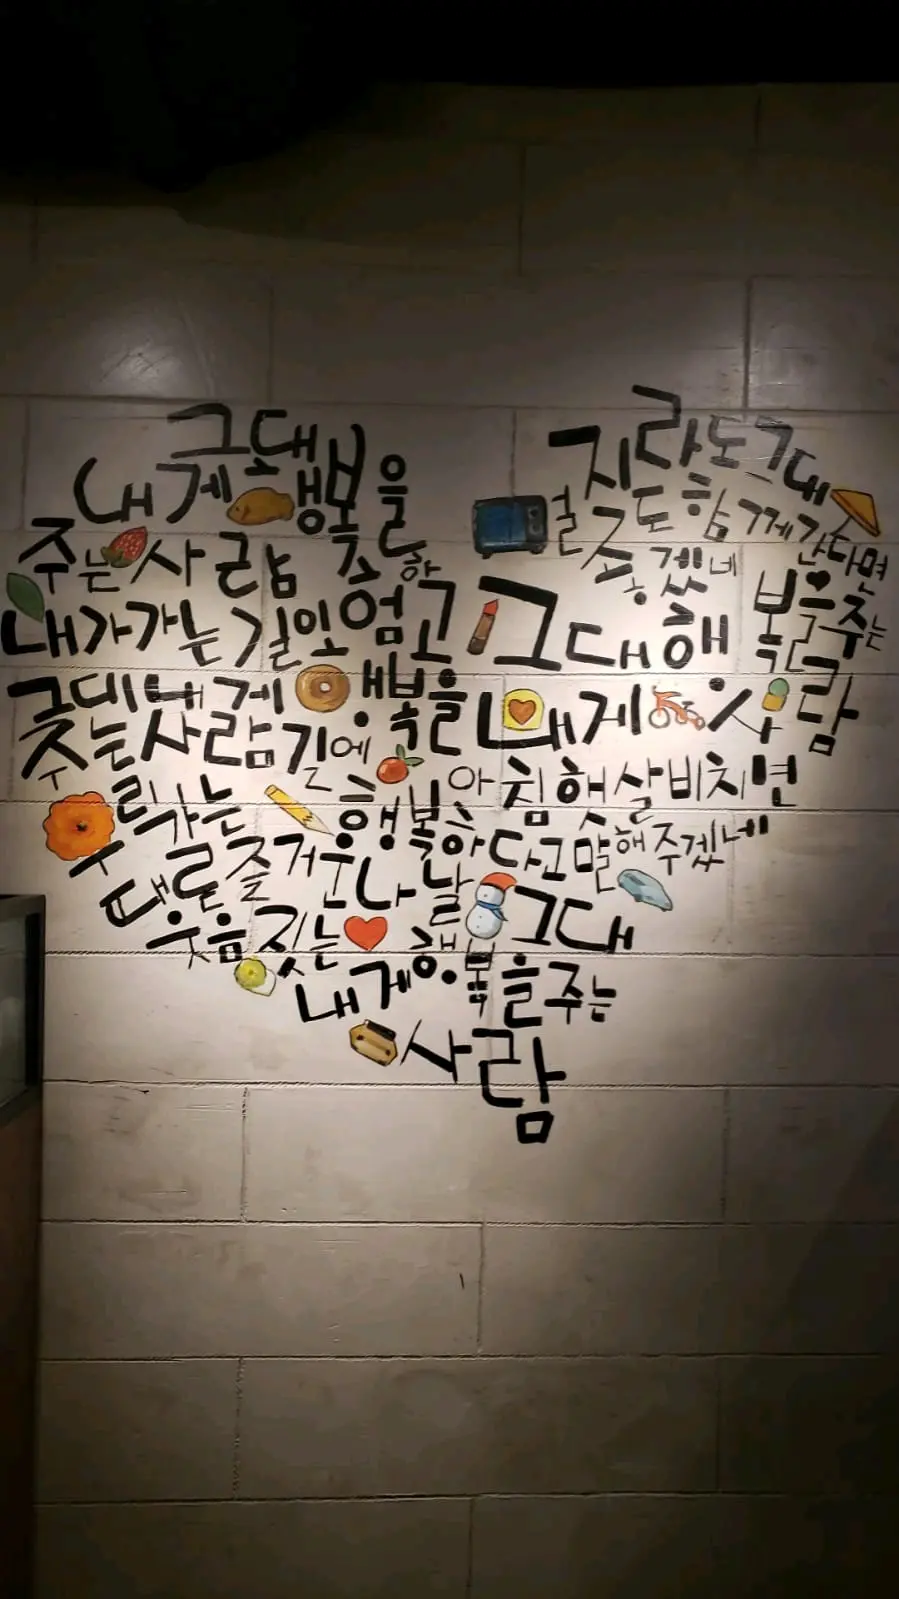 그대
내게 행복을
주는 사람
내가 가는 길이 험하고
지라도 그대
함께 간다면
좋겠네
그대 해 복을 주는
내게 사람
그대 내게 행복을
주는 사람 길에
아침 햇살 비치면
우리 가는 행복하다고 말해주겠네
때론 즐거운 나날
웃음 짓는 그대
내게 행복을 주는
사람